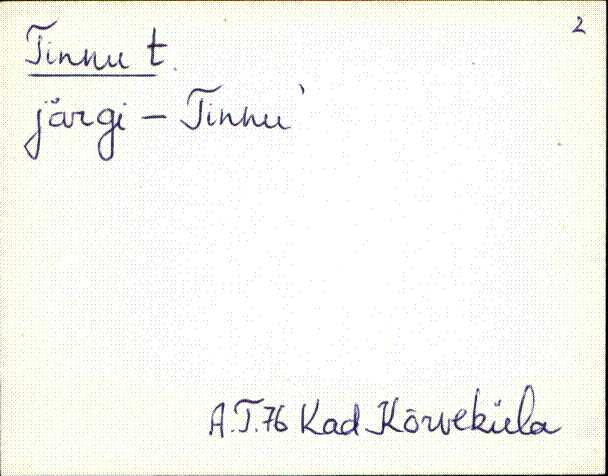 2
Tinnu t.
järgi – Tinnu'
A.T.76 Kad Kõrveküla